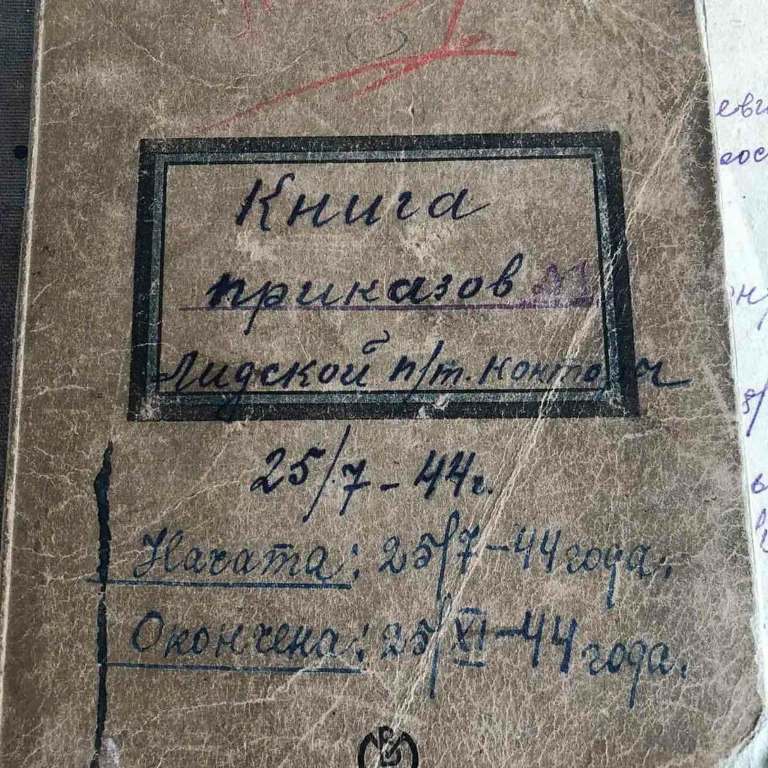 Книга
приказов №1
Лидской п/т. конторы
25/7-44г.
Начата: 25/7-44 года.
Окончена: 25/XI-44 года.